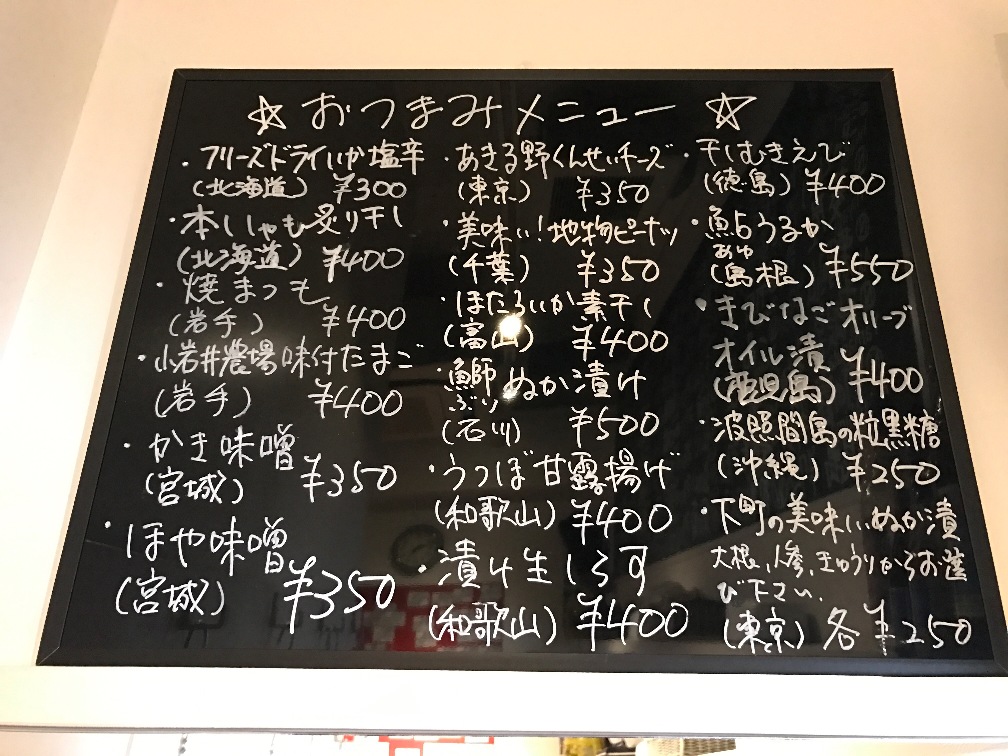 ☆おつまみメニュー☆
・フリーズドライいか塩辛
(北海道) ¥300
・本ししゃも炙り干し
(北海道) ¥400
・焼まつも
(岩手) ¥400
・小岩井農場味付たまご
(岩手) ¥400
・かき味噌
(宮城) ¥350
・ほや味噌
(宮城) ¥350
・あきる野くんせいチーズ
(東京) ¥350
・美味い!地物ピーナッツ
(千葉) ¥350
・ほたるいか素干し
(富山) ¥400
・鰤ぬか漬け
ぶり
(石川) ¥500
・うつぼ甘露揚げ
(和歌山) ¥400
・漬け生しらす
(和歌山) ¥400
・干しむきえび
(徳島) ¥400
・鮎うるか
あゆ
(島根) ¥550
・きびなごオリーブ
オイル漬
(鹿児島) ¥400
・波照間島の粒黒糖
(沖縄) ¥250
・下町の美味しいぬか漬
大根、人参、きゅうりからお選
び下さい。
(東京) 各¥250